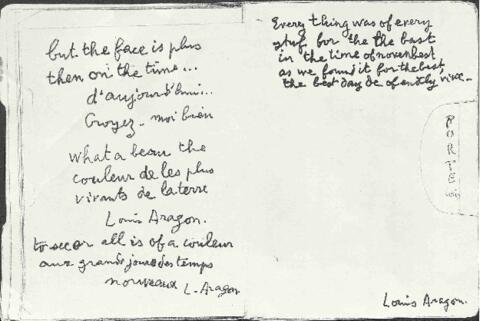 but the face is plus
then on the time...
d'aujourd'hui...
Croyez-moi bien
what a beau the
couleur de les plus
vivants de la terre
Louis Aragon.
to see or all is of a couleur
aux grands jours des temps
nouveaux L-Aragon
Every thing was of every
for the the bast
in the time of novenbest
as we found it for the best,
the best day de of
PORTES
Louis Aragon.